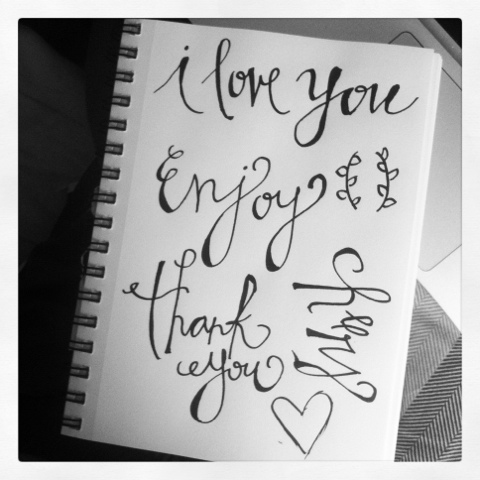 i love you
Enjoy
thank
you